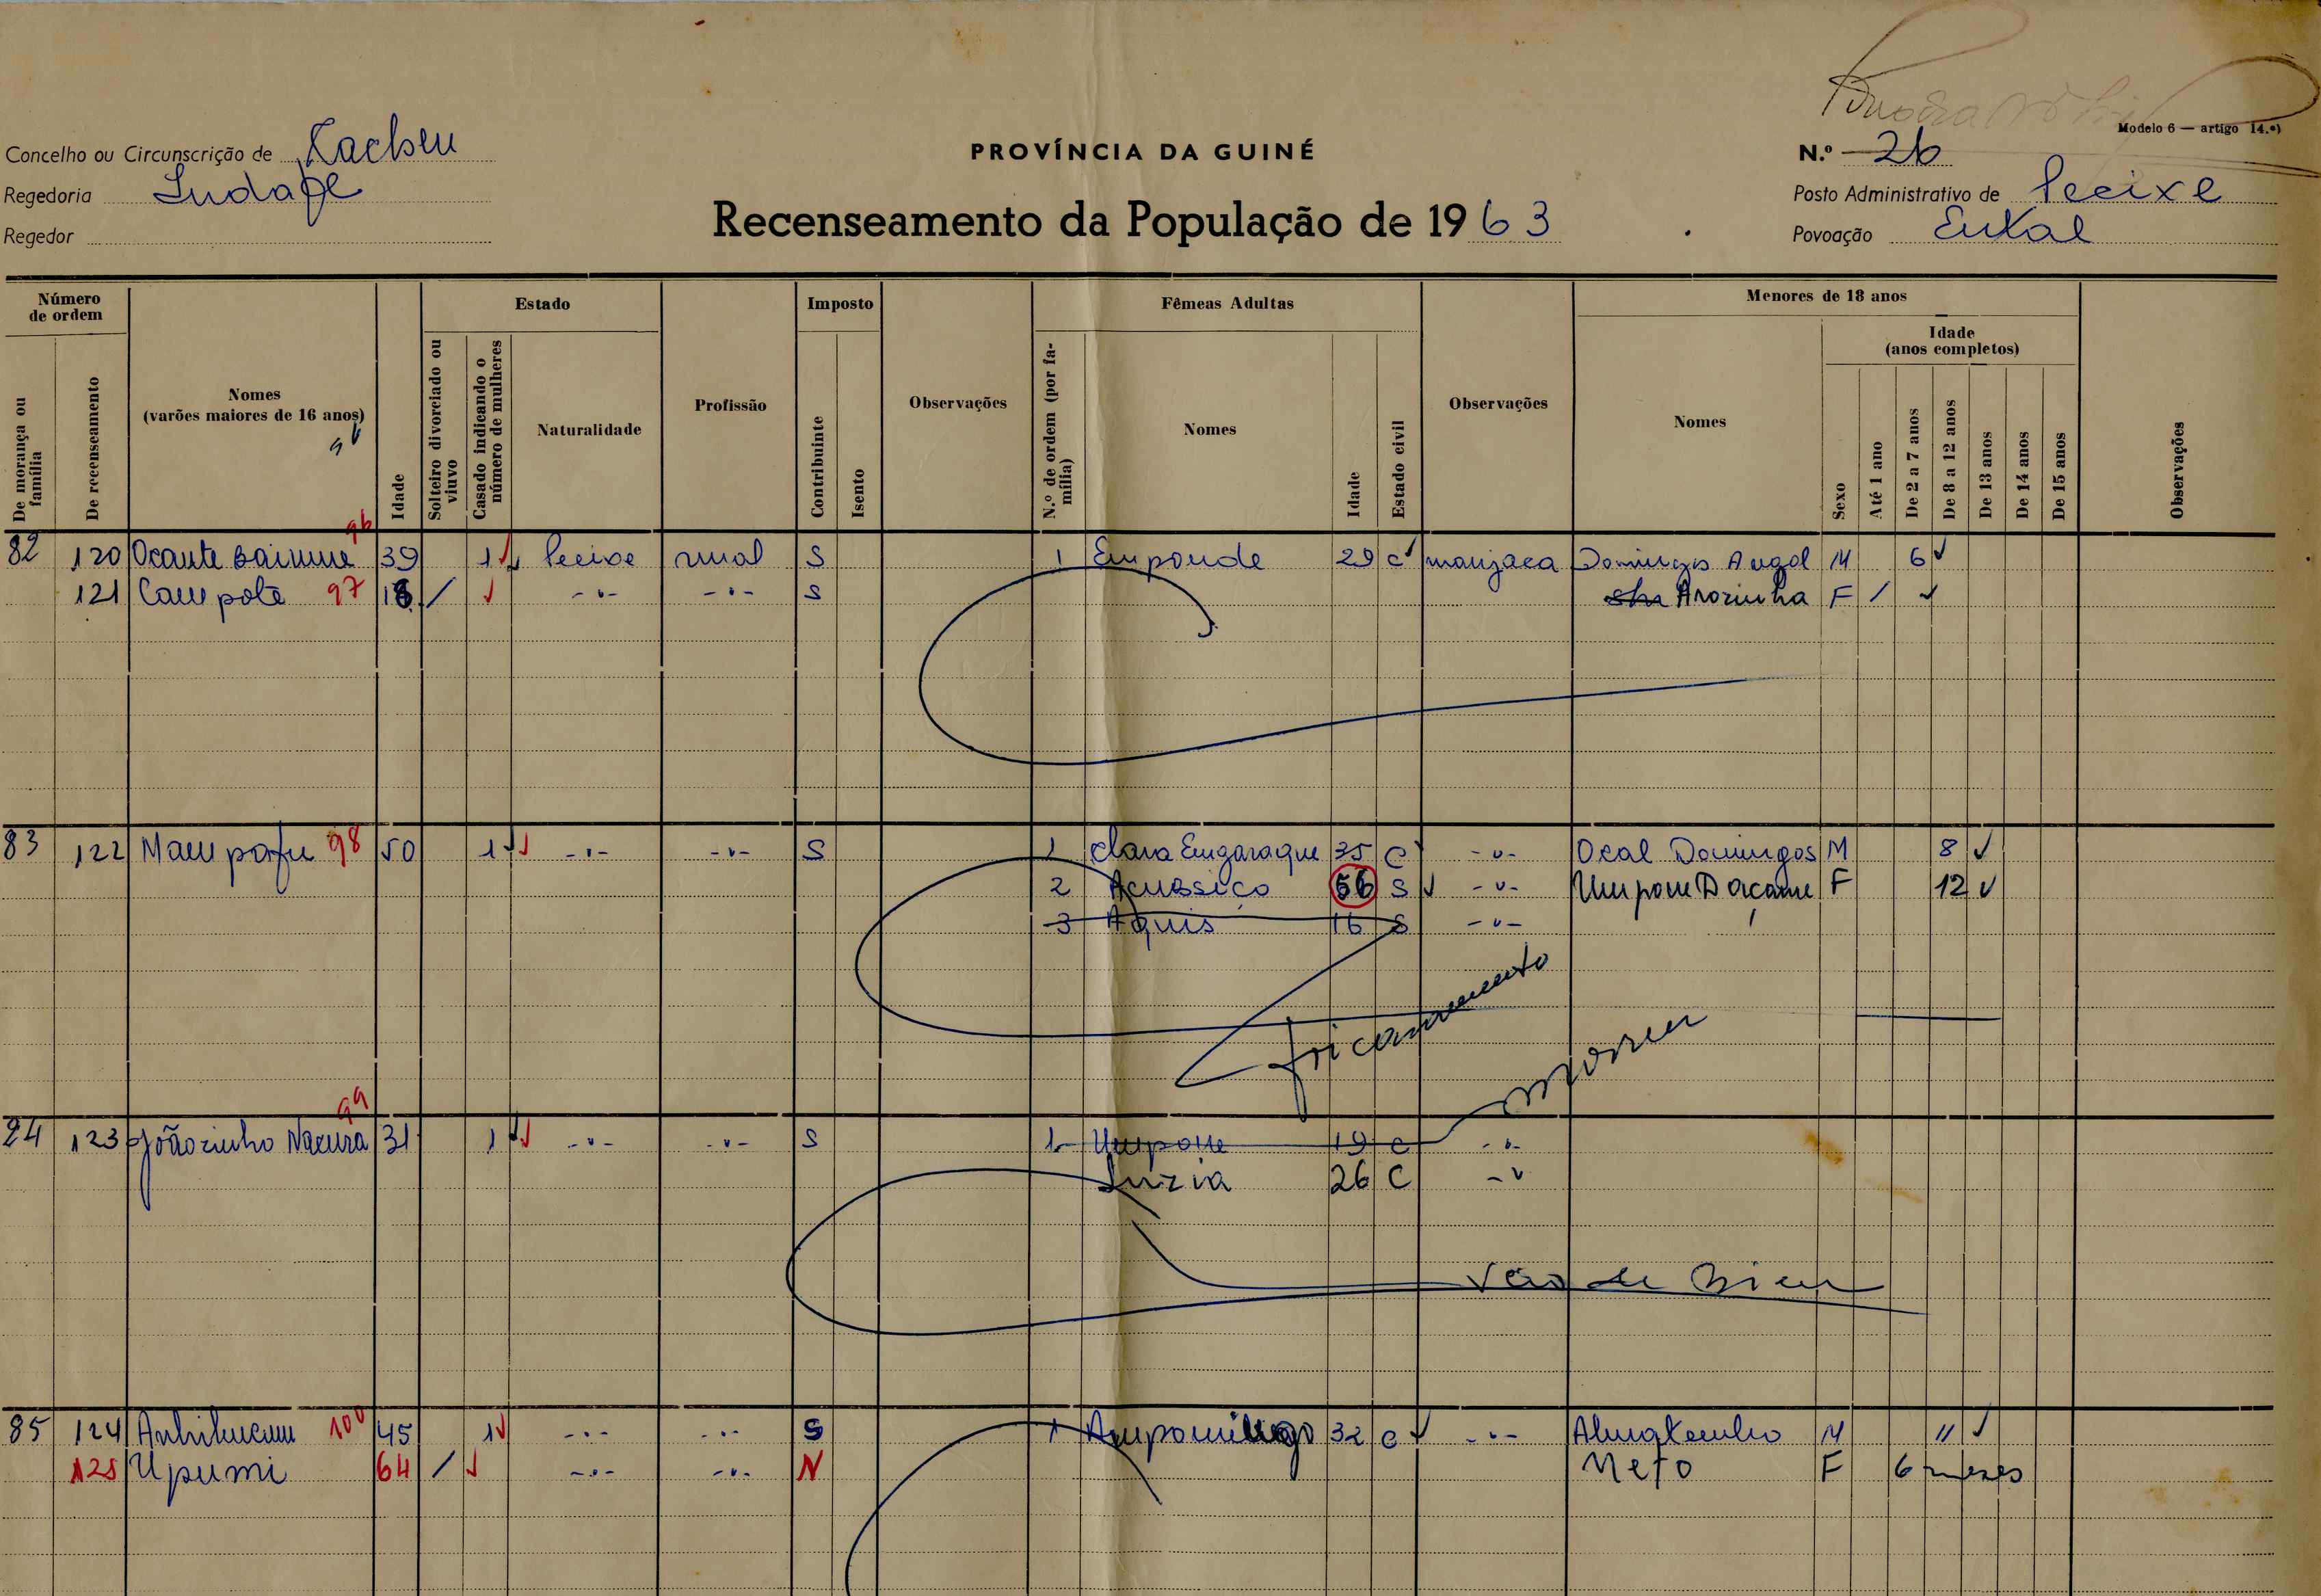 Modelo 6 — artigo 14.º)
Concelho ou Circunscrição de Cacheu
PROVÍNCIA DA GUINÉ
N.º 26
Regedoria
Posto Administrativo de Pecixe
Recenseamento da População de 1963
Regedor
Povoação
Número de ordem
De morança ou família
De recenseamento
Nomes
(varões maiores de 16 anos)
Idade
Estado
Solteiro divorciado ou viuvo
Casado indicando o número de mulheres
Naturalidade
Profissão
Imposto
Contribuinte
Isento
Observações
Fêmeas Adultas
N.º de ordem (por família)
Nomes
Idade
Estado civil
Observações
Menores de 18 anos
Nomes
Idade
(anos completos)
Sexo
Até 1 ano
De 2 a 7 anos
De 8 a 12 anos
De 13 anos
De 14 anos
De 15 anos
Observações
96
82 120 Ocante 39 1 Pecixe rural S 1 Emponde 29 C manjaca Domingos M 6
121 Campote 97 18 / -"- -"- S Arozinha F /
83 122 98 50 1 -"- -"- S 1 Clara Emgaraque 35 C -"- Ocal Domingos M 8
2 Acussiço 56 S -"- F 12
3 Aquis 16 S -"-
morreu
99
84 123 Joãozinho Nacura 31 1 -"- -"- S 1 19 C -"-
Luzia 26 C -"
85 124 100 45 1 -"- -"- S 1 32 C -"- M 11
125 Upumi 64 / -"- -"- N Neto F 6 meses